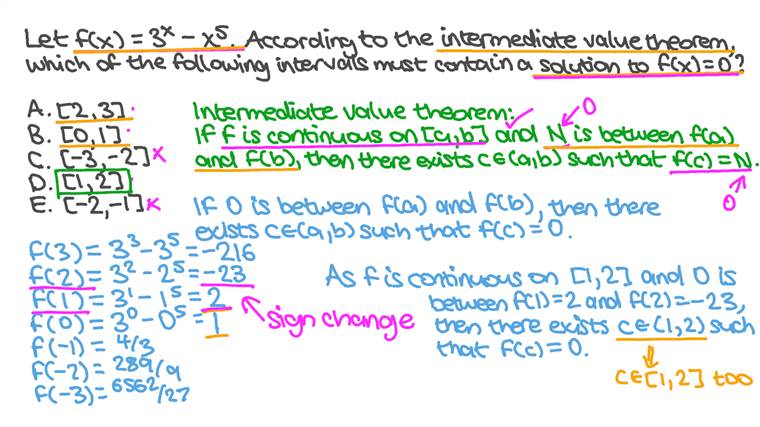 Let f(x) = 3ˣ − x⁵. According to the intermediate value theorem,
which of the following intervals must contain a solution to f(x)=0?
A. [2,3]
B. [0,1]
C. [-3,-2] x
D. [1,2]
E. [-2,-1] x
Intermediate value theorem:
If f is continuous on [a,b] ✓ and N is between f(a)
and f(b), then there exists c∈(a,b) such that f(c)=N.
0
0
If 0 is between f(a) and f(b), then there
exists c∈(a,b) such that f(c)=0.
f(3) = 3³ − 3⁵ = −216
f(2) = 3² − 2⁵ = −23
f(1) = 3¹ − 1⁵ = 2
f(0) = 3⁰ − 0⁵ = 1
f(-1) = 4/3
f(-2) = 289/9
f(-3) = 6562/27
sign change
As f is continuous on [1,2] and 0 is
between f(1)=2 and f(2)=−23,
then there exists c∈(1,2) such
that f(c)=0.
c∈[1,2] too